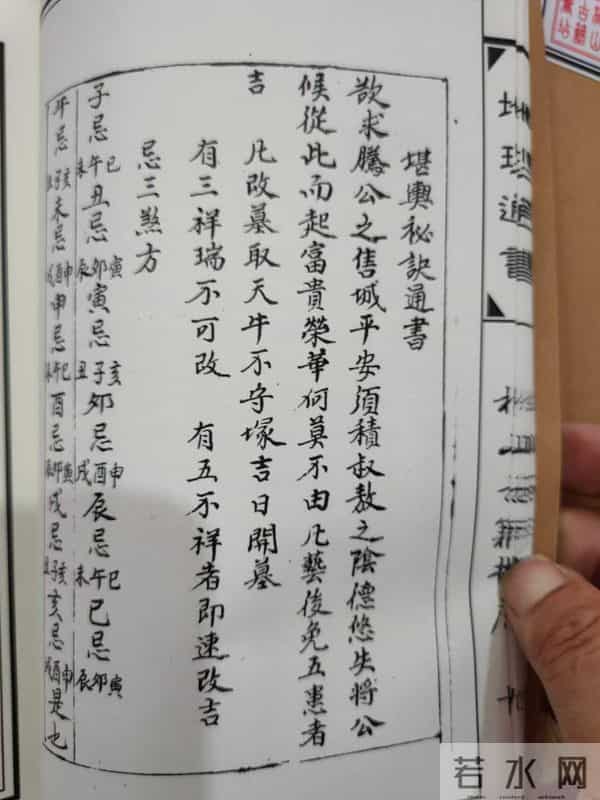 地理通書
堪輿秘訣通書
欲求騰公之售城平安須積叔敖之陰德悠失將公
候從此而起富貴榮華何莫不由凡藝後免五患者
吉 凡改墓取天牛不守塚吉日開墓
有三祥瑞不可改 有五不祥者即速改吉
忌三煞方
子忌巳午未丑忌寅卯辰寅忌亥子丑卯忌申酉戌辰忌巳午未巳忌寅卯辰
午忌亥子丑未忌申酉戌申忌巳午未酉忌寅卯辰戌忌亥子丑亥忌申酉戌是也
若水网